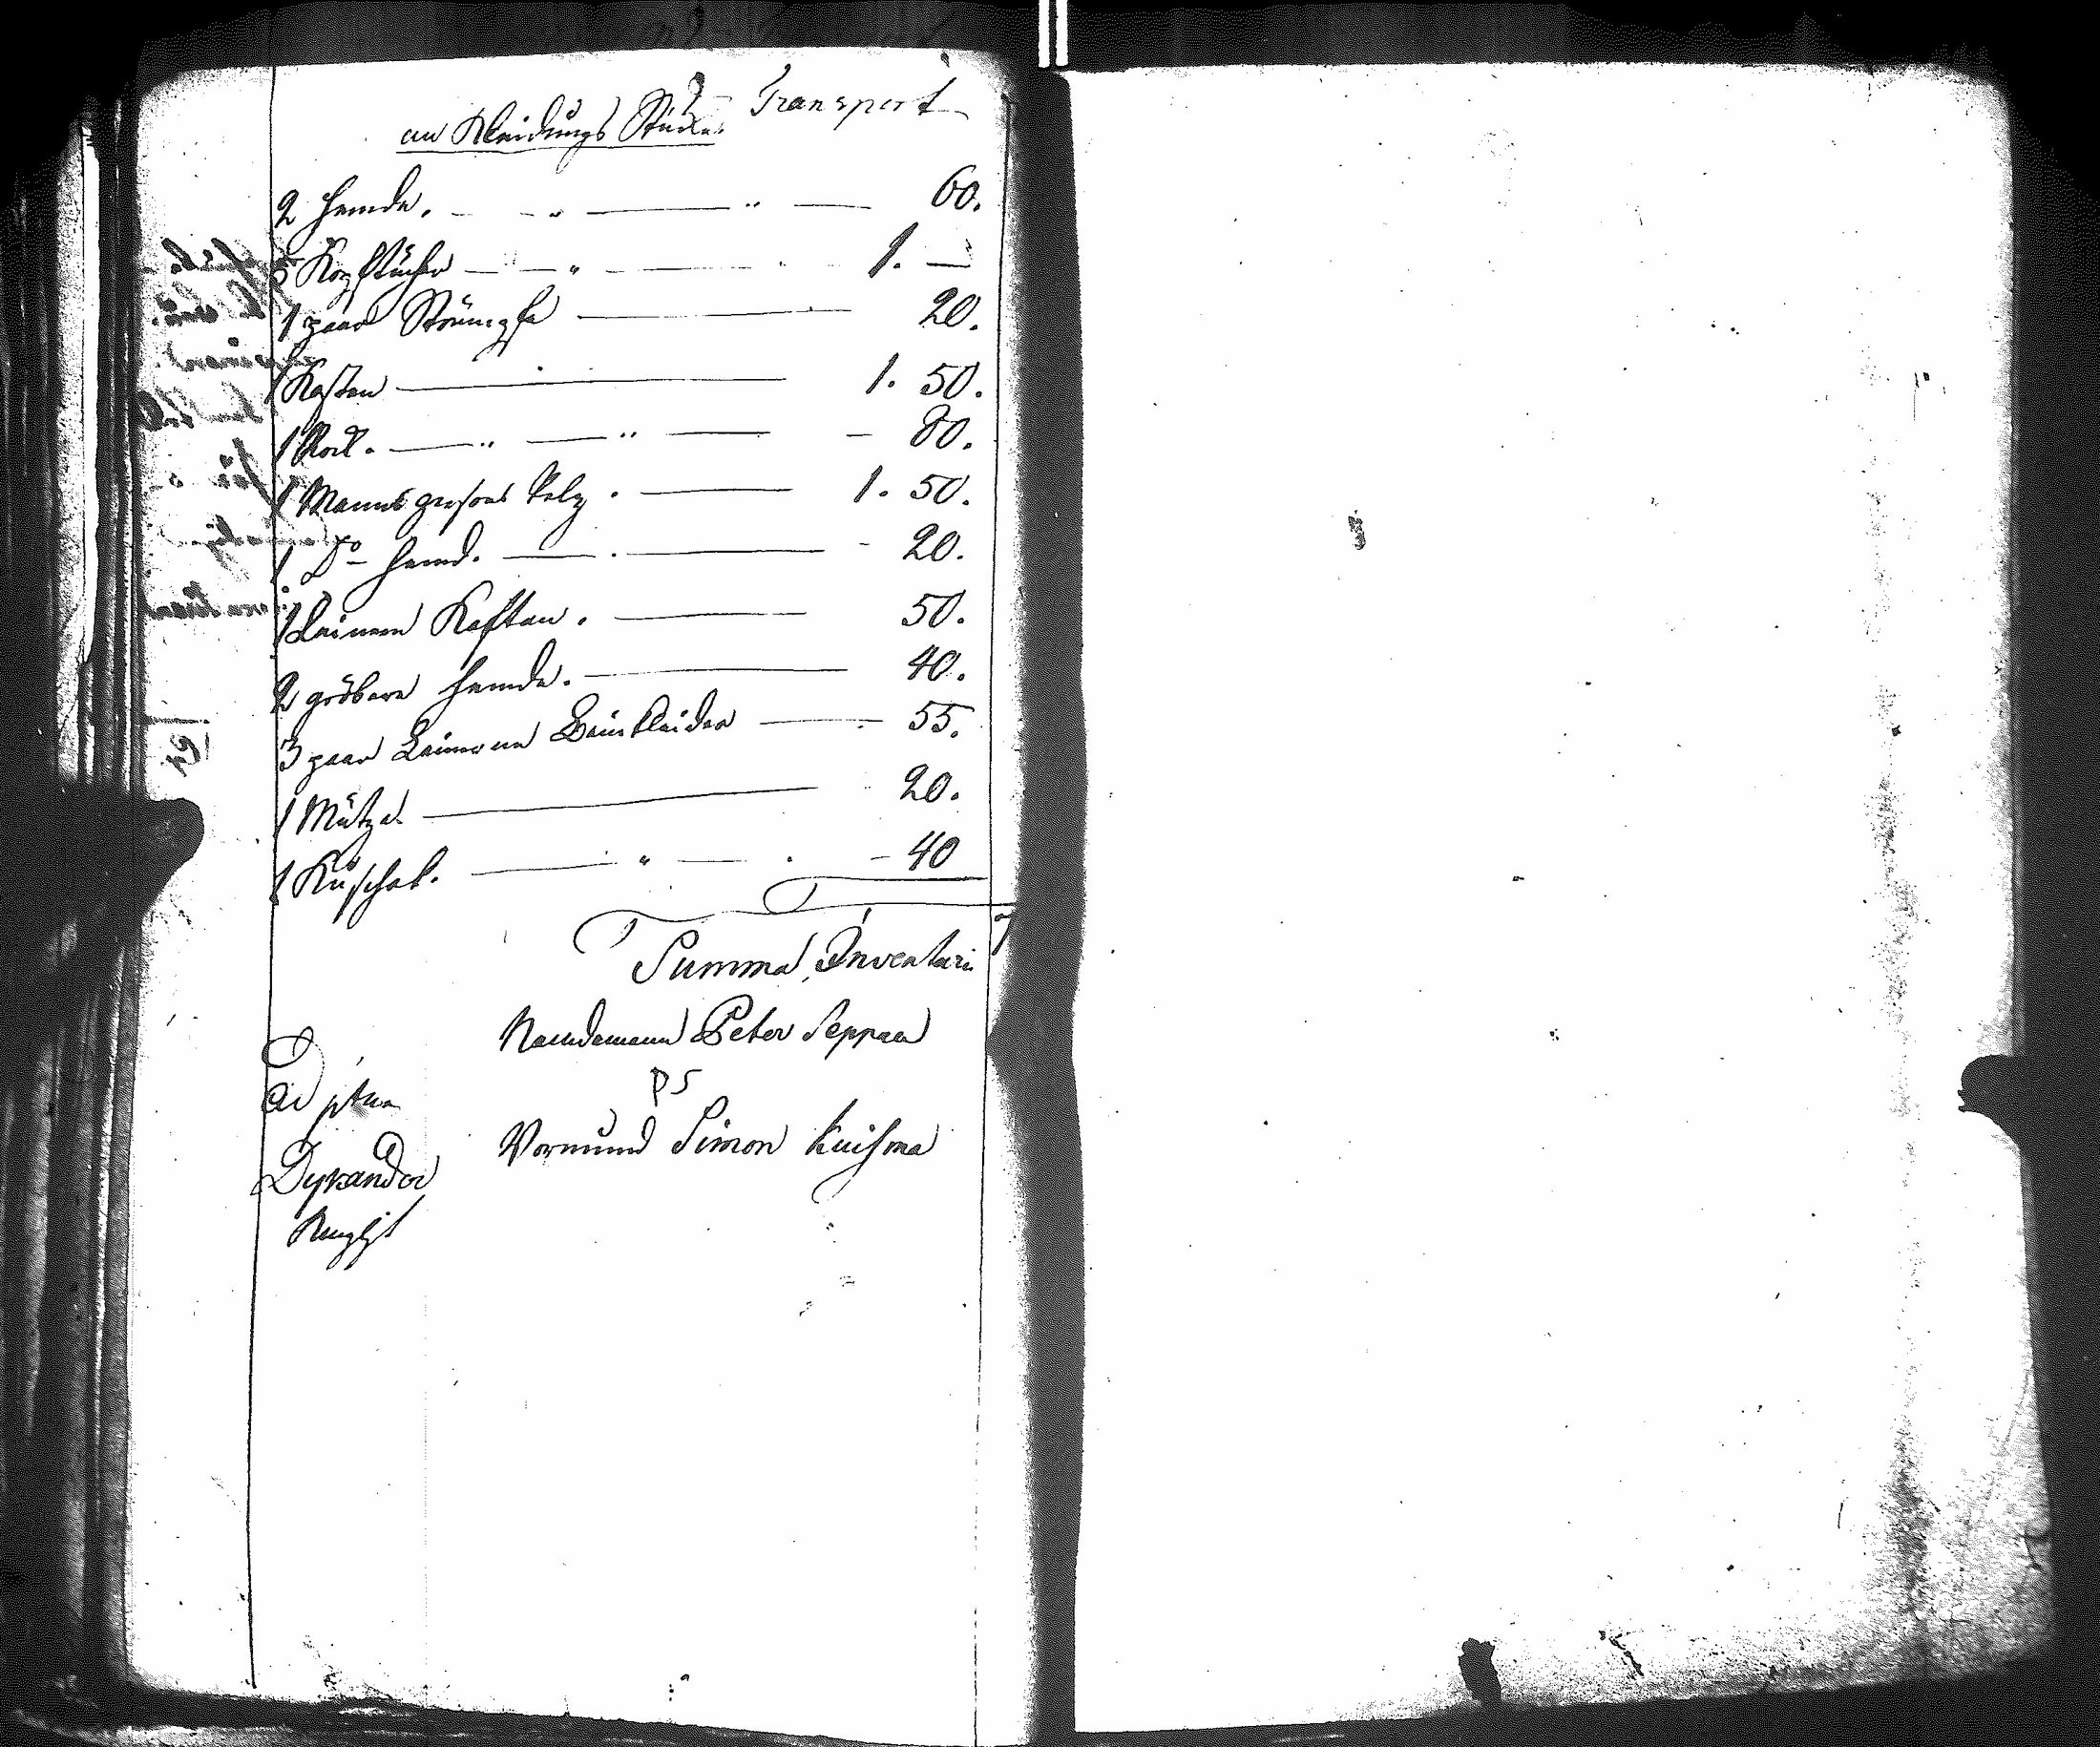 Transport
an Kleidungs Stücke.
2 Hemde. 60.
5 Kopftücher 1. —
1 paar Strümpfe 20.
1 Kasten 1. 50.
1 Rock. 80.
1 Manns grosser Pelz. 1. 50.
1 Do Hemd. 20.
1 Leinen Kaftan. 50.
2 gröbere Hemde. 40.
3 paar Leinenen Beinkleider 55.
1 Mütze 20.
1 Kuschak. 40
Summa Inventari
Naemdemann Peter Seppäa
PS
Vormund Simon Kuisma